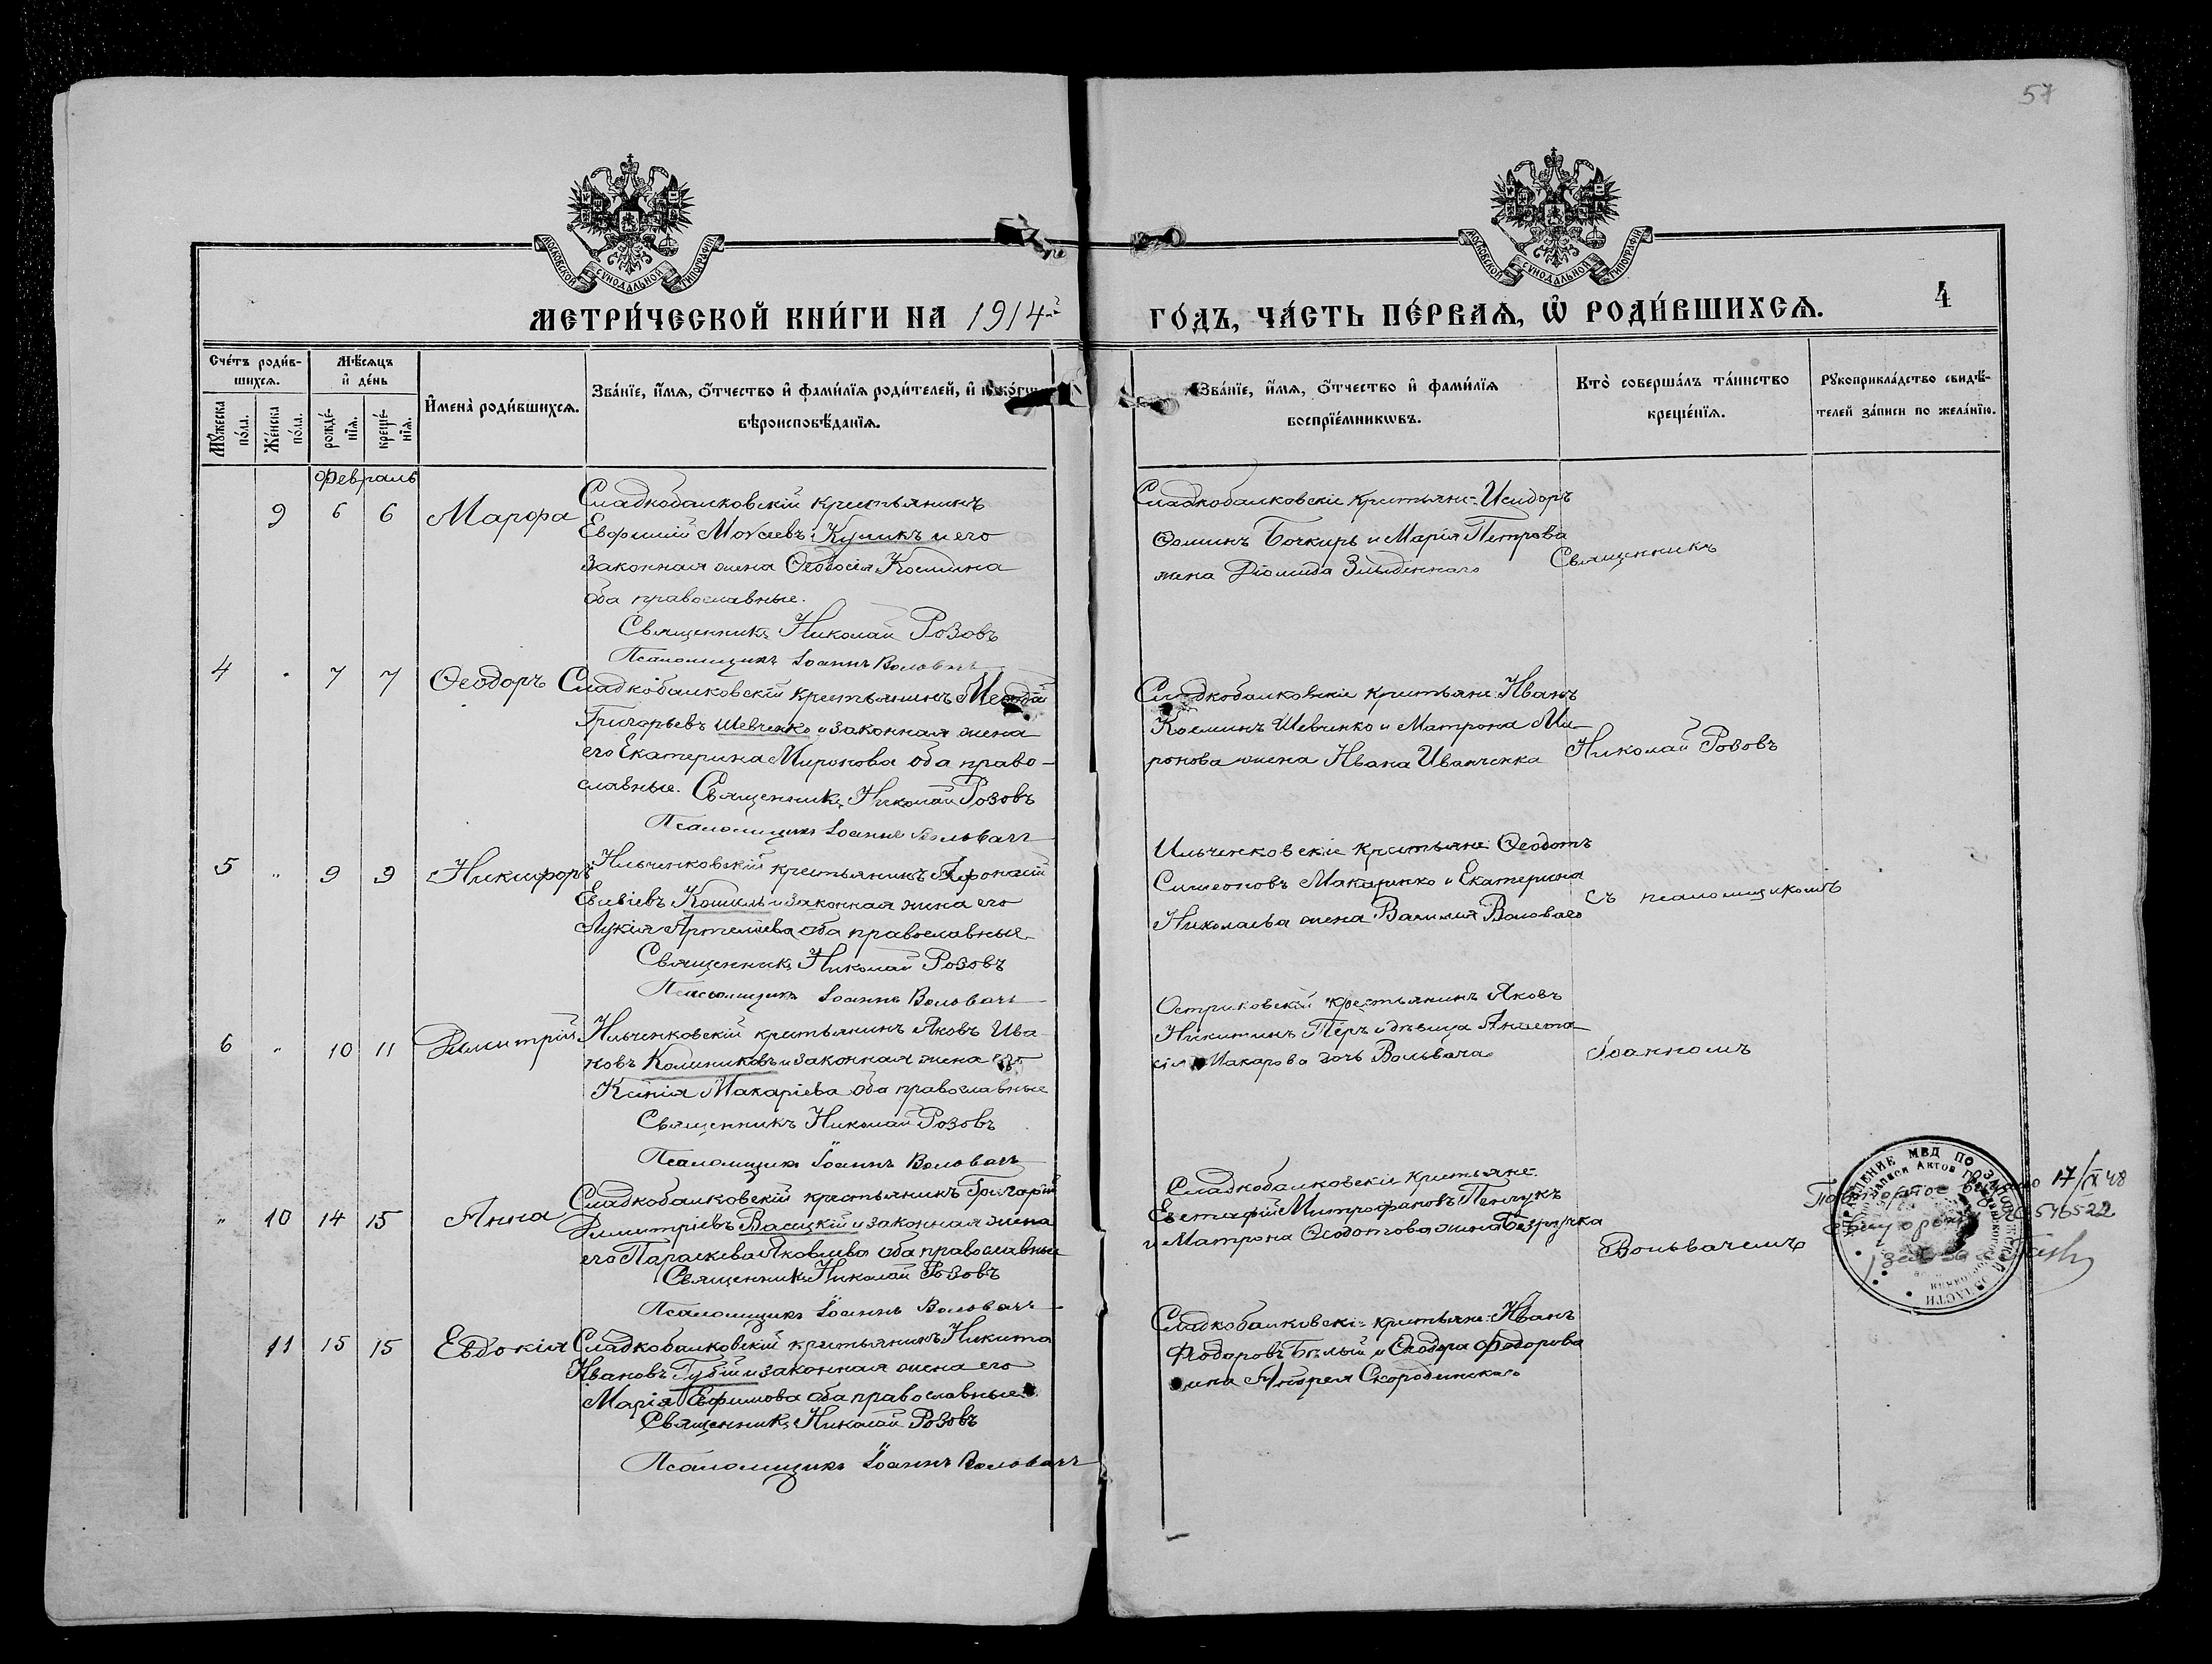 57
МОСКОВСКОЙ СУНОДАЛЬНОЙ ТИПОГРАФІИ
МОСКОВСКОЙ СУНОДАЛЬНОЙ ТИПОГРАФІИ
МЕТРИ́ЧЕСКОЙ КНИ́ГИ НА 1914й ГО́ДЪ, ЧА́СТЬ ПЕ́РВАѦ, Ѡ҆ РОДИ́ВШИХСѦ.
4
Сче́тъ роди́в-
шихсѧ.
Мꙋ́жеска по́ла.
Же́нска по́ла.
Мѣ́сѧцъ
и҆ де́нь
рожде́-
нїѧ.
креще́-
нїѧ.
И҆мена̀ роди́вшихсѧ.
Зва́нїе, и҆́мѧ, ѻ҆́тчество и҆ фами́лїѧ роди́телей, и҆
вѣроисповѣ́данїѧ.
Зва́нїе, и҆́мѧ, ѻ҆́тчество и҆ фами́лїѧ
воспрїе́мникѡвъ.
Кто̀ соверша́лъ та́инство
креще́нїѧ.
Рꙋкоприкла́дство свидѣ́-
телей за́писи по жела́нїю.
Февраль
9 6 6 Марфа
Сладкобалковскій крестьянинъ
Евфимій Моѵсеевъ Куликъ и его
законная жена Ѳеодосія Космина
оба православные.
Священникъ Николай Розовъ
Псаломщикъ Іоаннъ Вольвачъ
Сладкобалковскіе крестьяне: Исидоръ
Ѳоминъ Бочкирь и Марія Петрова
жена Діомида
Священникъ
4 " 7 7 Ѳеодоръ
Сладкобалковскій крестьянинъ
Григорьевъ Шевченко и законная жена
его Екатерина Миронова оба право-
славные. Священникъ Николай Розовъ
Псаломщикъ Іоаннъ Вольвачъ
Сладкобалковскіе крестьяне: Иванъ
Косминъ Шевченко и Матрона Ми-
ронова жена Ивана Иванченка
Николай Розовъ
5 " 9 9 Никифоръ
Ильченковскій крестьянинъ
Евсевіевъ Кошиль и законная жена его
Лукія оба православные
Священникъ Николай Розовъ
Псаломщикъ Іоаннъ Вольвачъ
Ильченковскіе крестьяне Ѳеодотъ
Симеоновъ Макаренко и Екатерина
Николаева жена Василія
съ псаломщикомъ
6 " 10 11 Димитрій
Ильченковскій крестьянинъ Яковъ Ива-
новъ Колиниковъ и законная жена его
Ксенія Макаріева оба православные
Священникъ Николай Розовъ
Псаломщикъ Іоаннъ Вольвачъ
Остриковскій крестьянинъ Яковъ
Никитинъ и дѣвица Анаста-
сія Макарова дочь Вольвача
Іоанномъ
" 10 14 15 Анна
Сладкобалковскій крестьянинъ Григорій
Димитріевъ Васицкій и законная жена
его Параскева Яковлева оба православные
Священникъ Николай Розовъ
Псаломщикъ Іоаннъ Вольвачъ
Сладкобалковскіе крестьяне:
Евстафій Митрофановъ Пенчукъ
и Матрона Ѳеодотова жена Безручка
Вольвачемъ
УПРАВЛЕНИЕ МВД ПО ЗАПОРОЖСКОЙ ОБЛАСТИ
Повторное выдано 17/IX 48
576522
11 15 15 Евдокія
Сладкобалковскій крестьянинъ Никита
Ивановъ Губій и законная жена его
Марія Ефимова оба православные
Священникъ Николай Розовъ
Псаломщикъ Іоаннъ Вольвачъ
Сладкобалковскіе крестьяне: Иванъ
Ѳеодоровъ Бѣлый и Ѳеодора Ѳеодорова
жена Андрея Скородинского